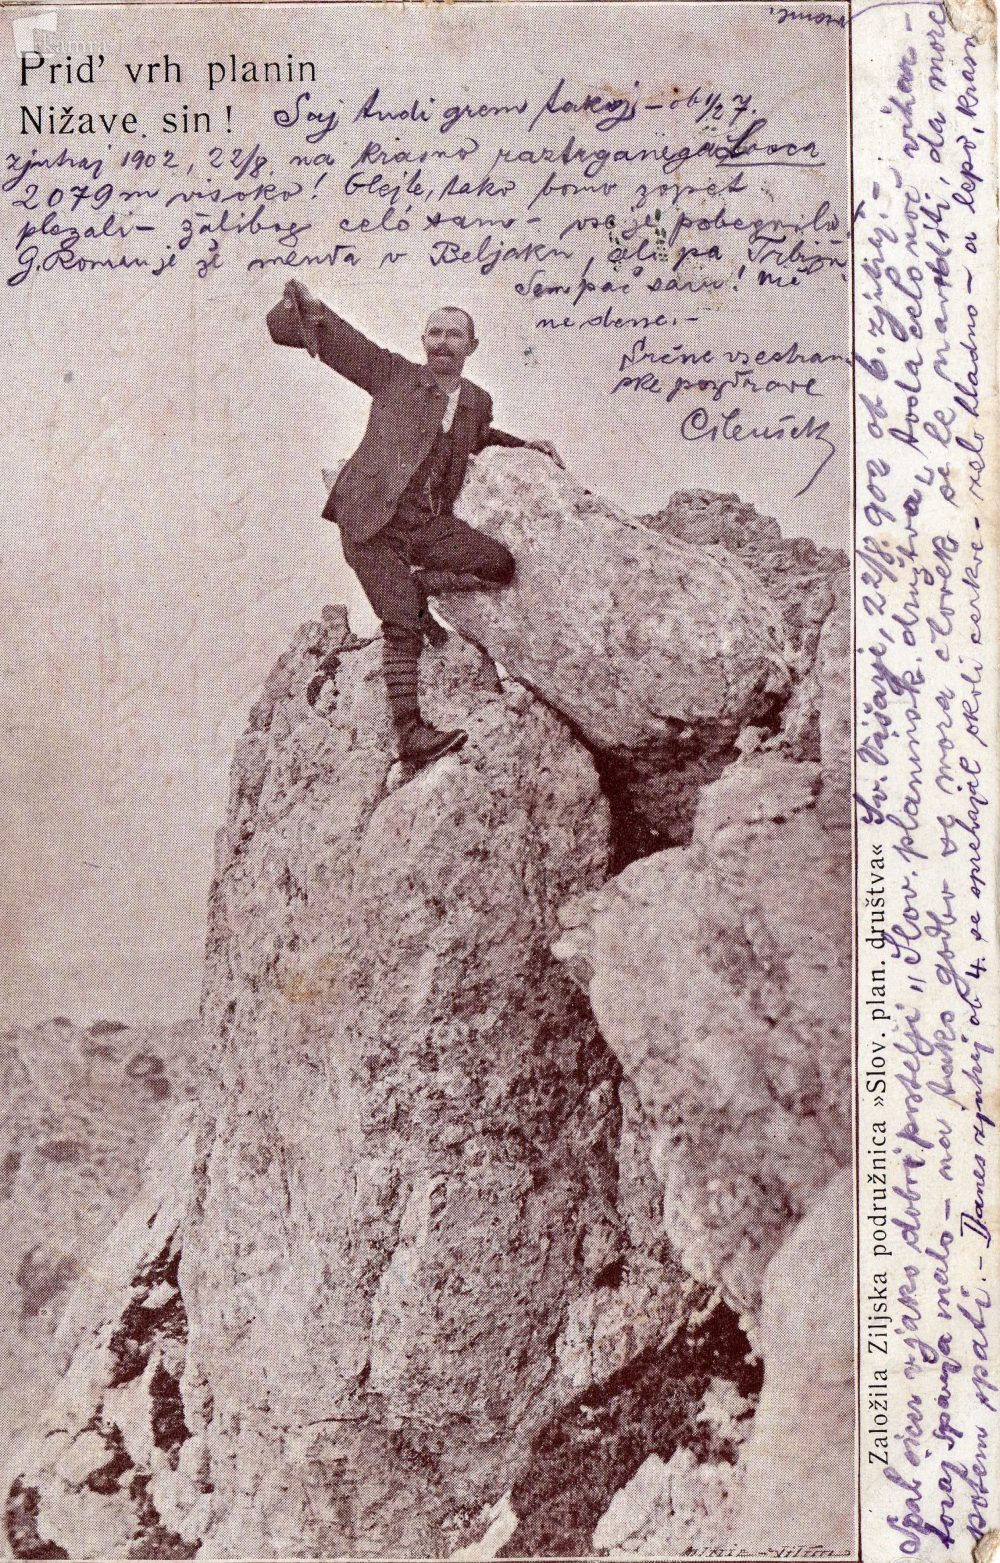 kamra
Prid' vrh planin
Nižave sin!
Saj tudi grem takoj - ob 1/2 7.
zjutraj 1902, 22/8. na krasno raztrganega Lovca
2079 m visoko! Glejte, tako bomo zopet
plezali - žalibog celó samo - vse je pobegnilo.
G. Roman je že menda v Beljaku, ali pa Trbižu
Sem pač sam! nič
ne dene. -
Srčne vsestran
ske pozdrave
Cilenšek
Založila Ziljska podružnica »Slov. plan. društva«
Sv. Višarje, 22/8 902 ob 6. zjutraj. -
Spal sicer v jako dobri postelji „Slov. planinsk. društva", toda celo noč vihar -
toraj spanja malo - na tako godbo se mora človek še le navaditi, da more
potem spati. - Danes zjutraj ob 4. se sprehajal okoli cerkve - zelo hladno - a lepo, krasno